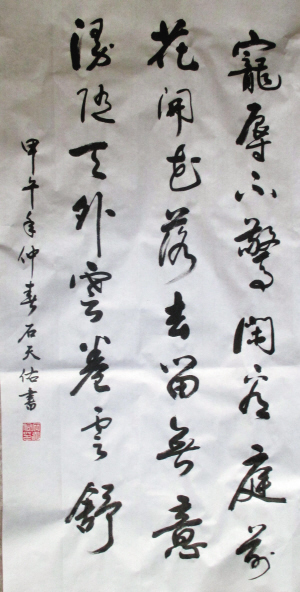 寵辱不驚閑看庭前
花開花落去留無意
漫隨天外雲卷雲舒
甲午年仲春石天佑書